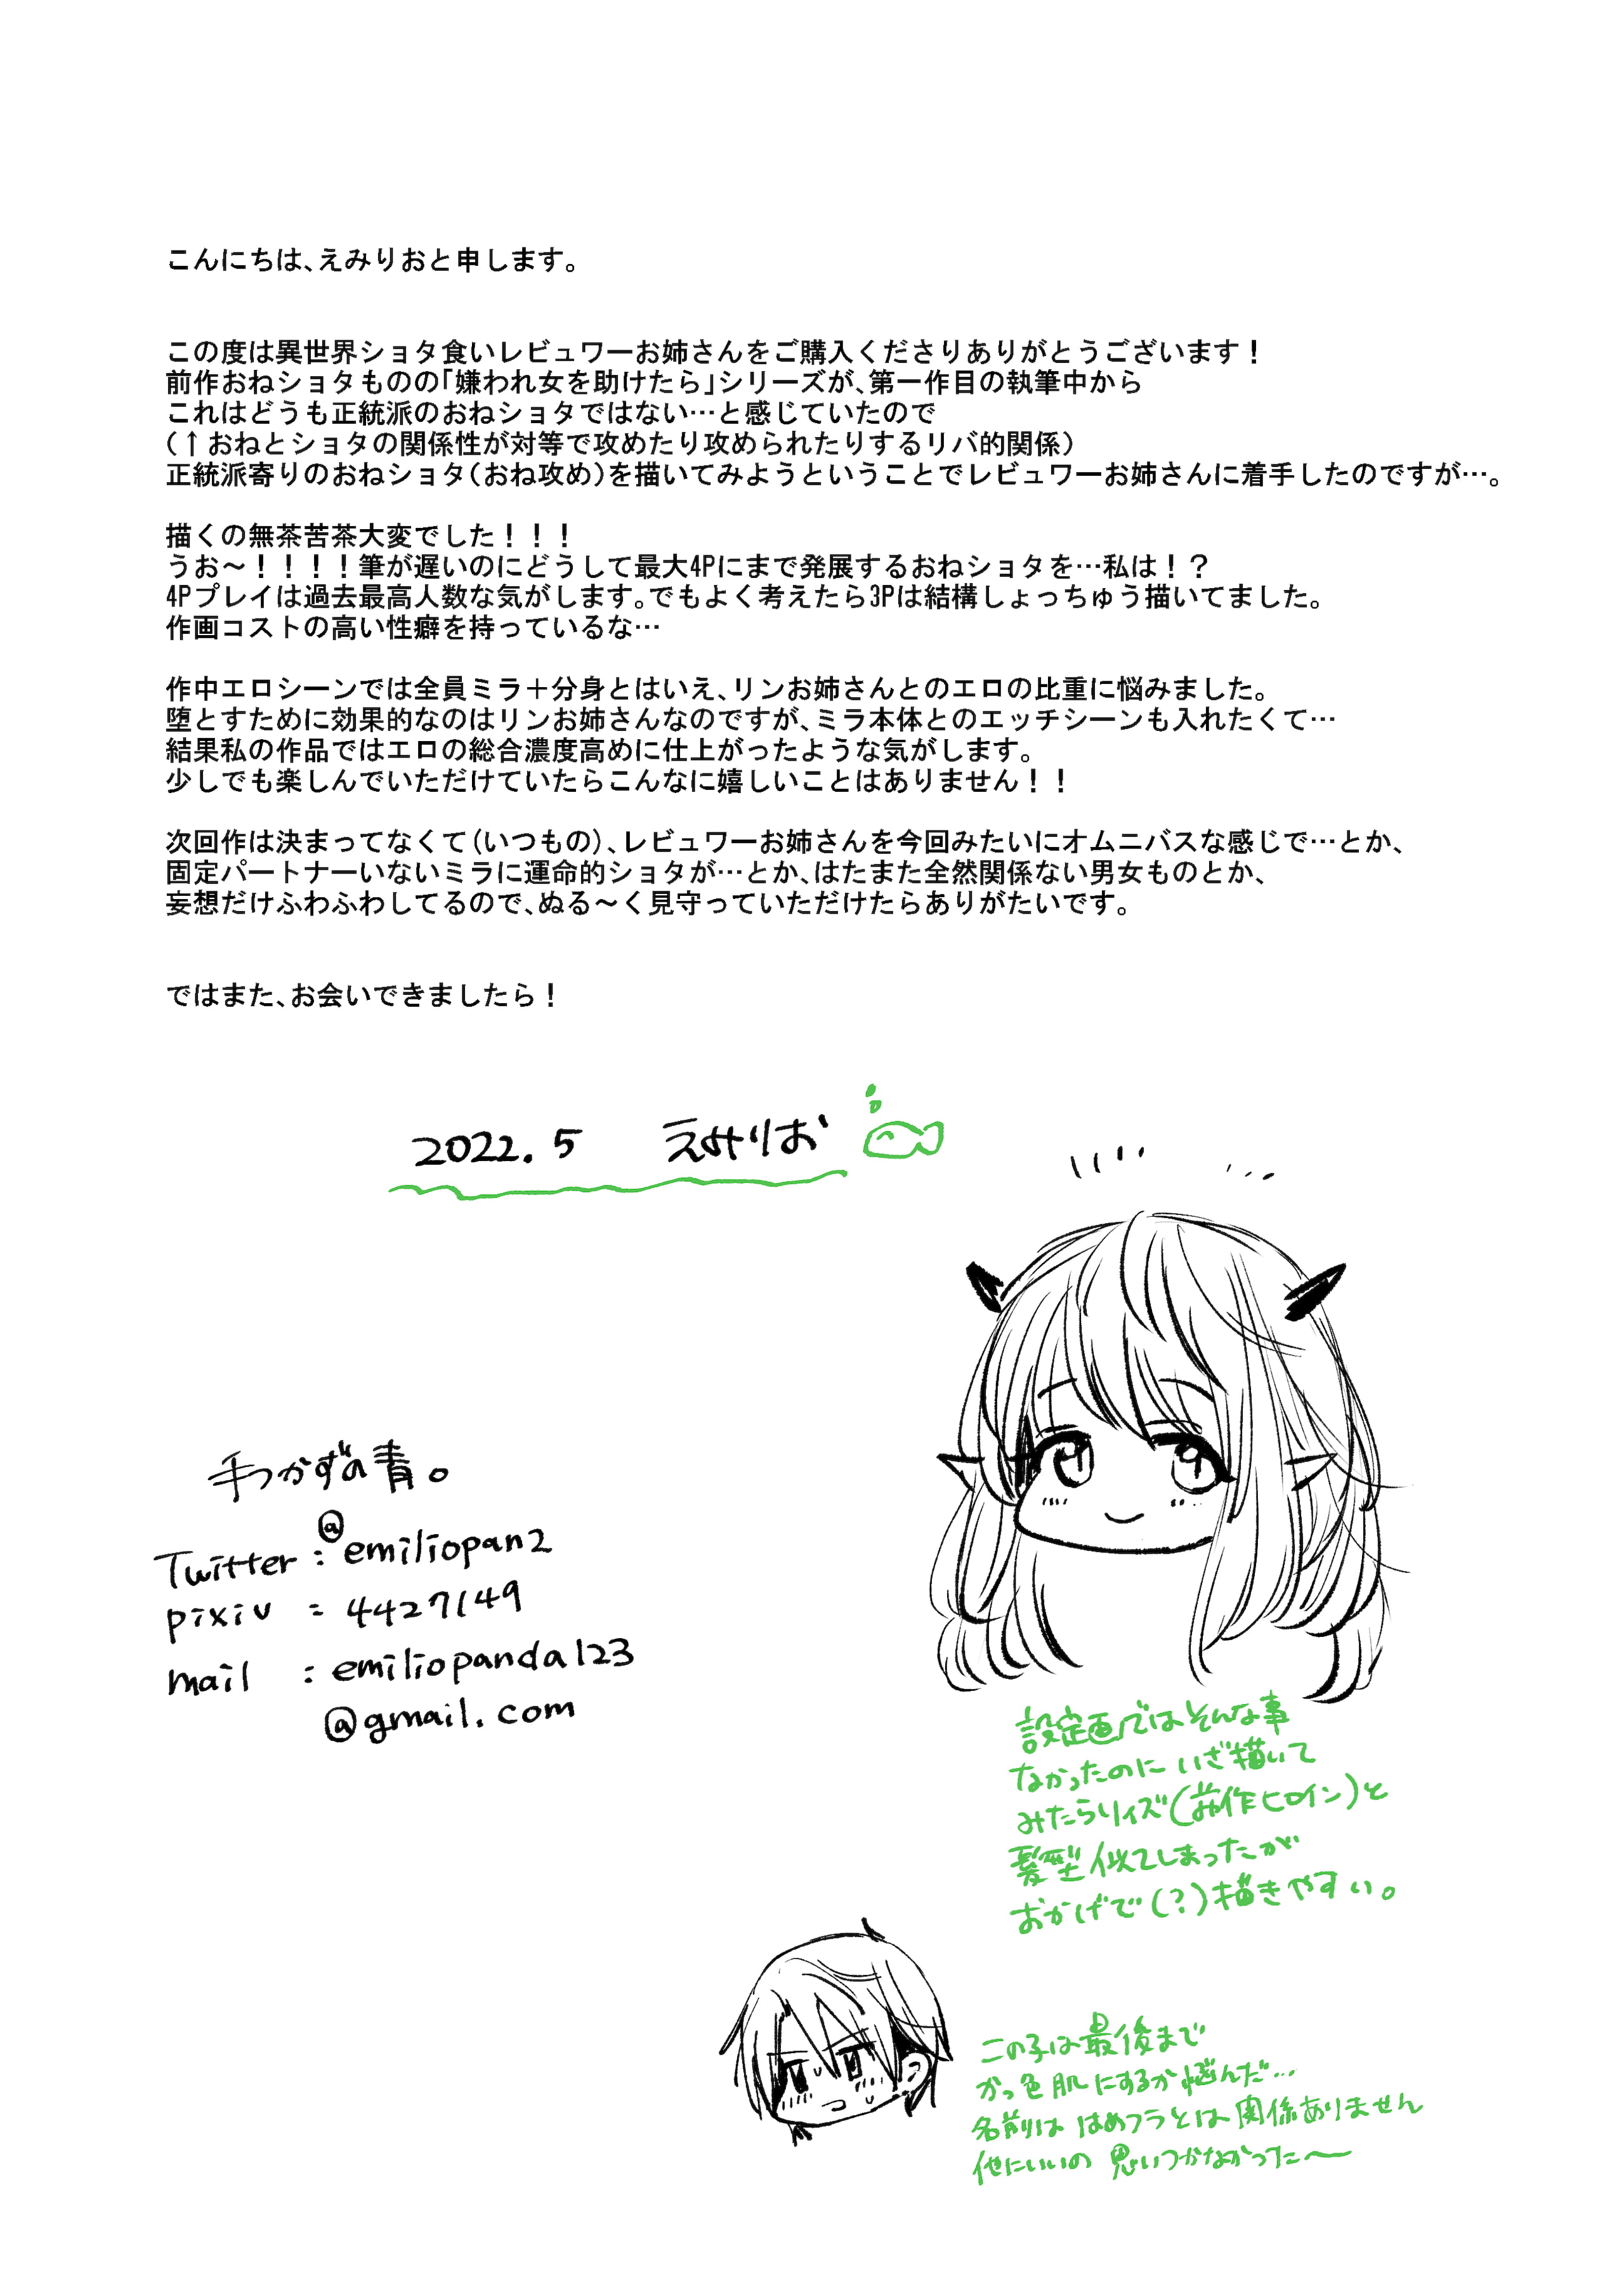 こんにちは、えみりおと申します。
この度は異世界ショタ食いレビュワーお姉さんをご購入くださりありがとうございます！
前作おねショタものの「嫌われ女を助けたら」シリーズが、第一作目の執筆中から
これはどうも正統派のおねショタではない…と感じていたので
(↑おねとショタの関係性が対等で攻めたり攻められたりするリバ的関係)
正統派寄りのおねショタ(おね攻め)を描いてみようということでレビュワーお姉さんに着手したのですが…。
描くの無茶苦茶大変でした！！！
うお～！！！！筆が遅いのにどうして最大4Pにまで発展するおねショタを…私は！？
4Pプレイは過去最高人数な気がします。でもよく考えたら3Pは結構しょっちゅう描いてました。
作画コストの高い性癖を持っているな…
作中エロシーンでは全員ミラ＋分身とはいえ、リンお姉さんとのエロの比重に悩みました。
堕とすために効果的なのはリンお姉さんなのですが、ミラ本体とのエッチシーンも入れたくて…
結果私の作品ではエロの総合濃度高めに仕上がったような気がします。
少しでも楽しんでいただけていたらこんなに嬉しいことはありません！！
次回作は決まってなくて(いつもの)、レビュワーお姉さんを今回みたいにオムニバスな感じで…とか、
固定パートナーいないミラに運命的ショタが…とか、はたまた全然関係ない男女ものとか、
妄想だけふわふわしてるので、ぬる～く見守っていただけたらありがたいです。
ではまた、お会いできましたら！
2022.5 えみりお
手つかずの青。
Twitter : @emiliopan2
pixiv : 4427149
mail : emiliopanda123
@gmail.com
設定画ではそんな事
なかったのに いざ描いて
みたらリイズ(前作ヒロイン)と
髪型似てしまったが
おかげで(?)描きやすい。
この子は最後まで
かっ色肌にするか悩んだ…
名前は はめフラとは関係ありません
他にいいの 思いつかなかった〜